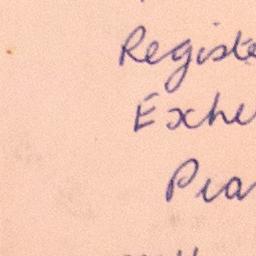 Registe
Exhe
Pra